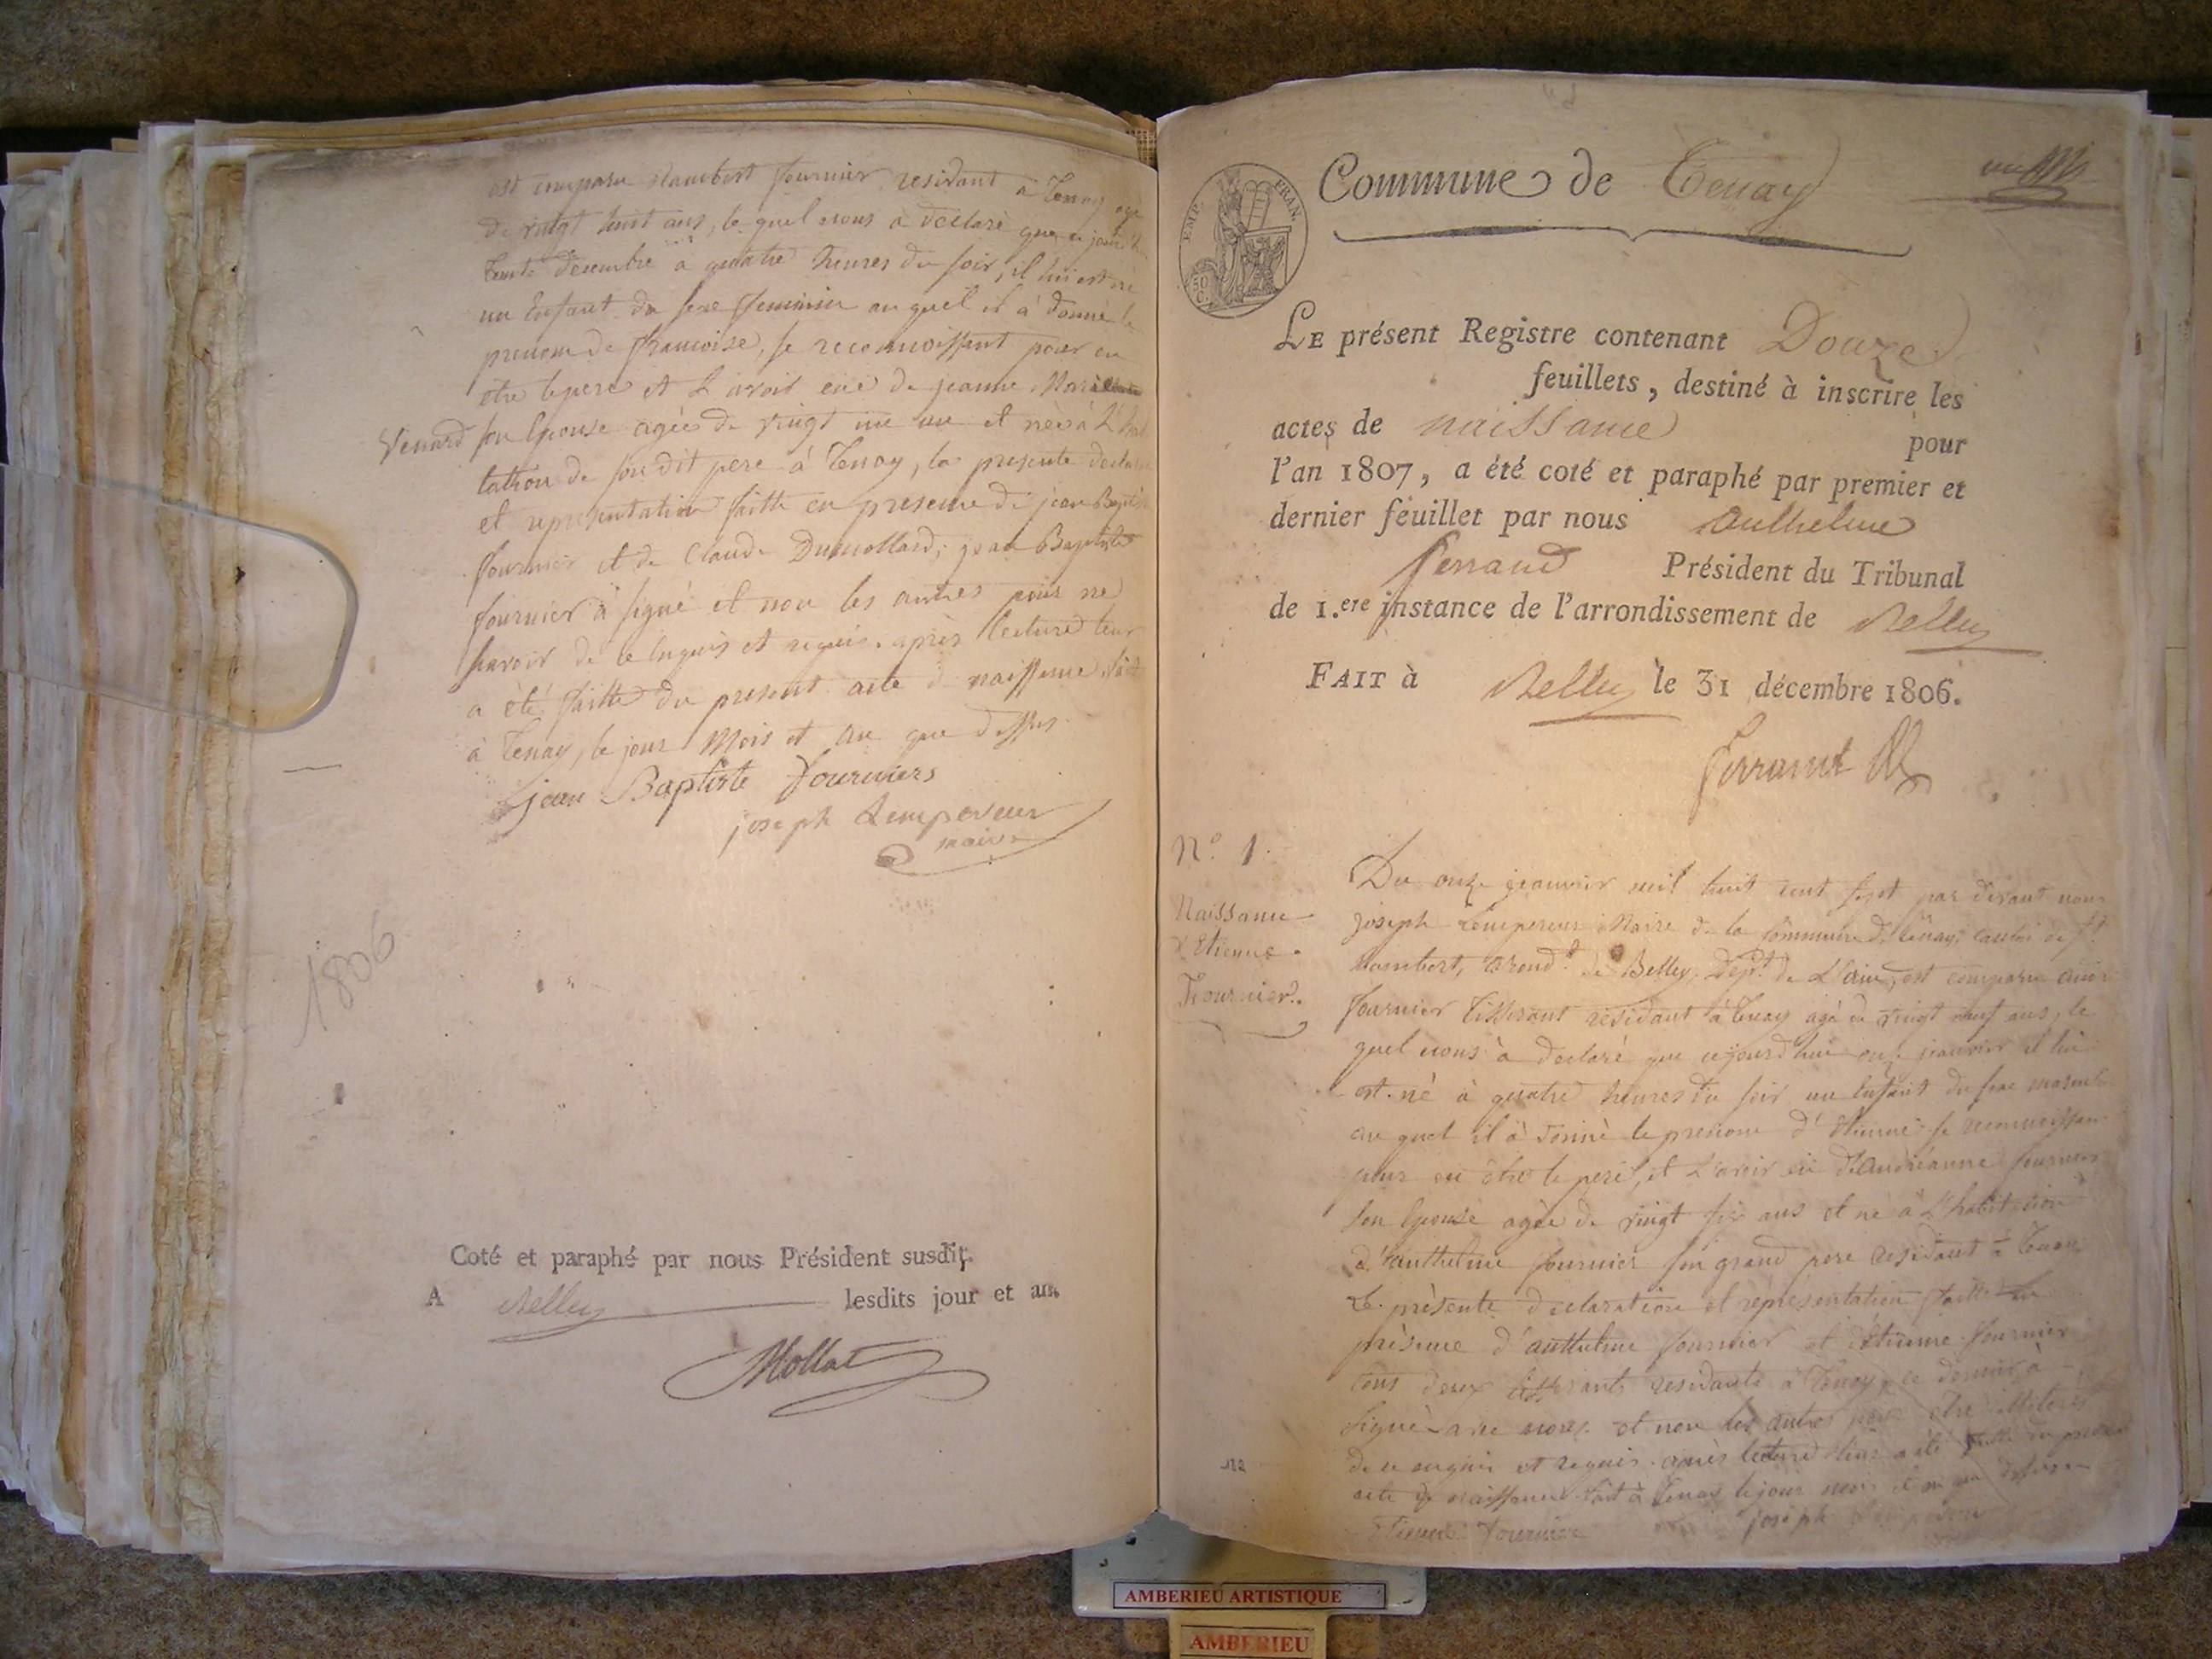 est comparu Rambert fournier residant à Tenay agé
de vingt huit ans, le quel nous à declaré que ce jourd'h
trente decembre à quatre heures du soir, il lui est né
un Enfant du sexe feminin au quel il à donné le
prenom de francoise, se reconnoissant pour en
etre le pere et L'avoir eue de jeanne Marie
Venard son Epouse agée de vingt un an et née à L'habi
tation de son dit pere à Tenay, la presente declara
et representation faitte en presence de jean Baptiste
fournier et de Claude Dumollard, jean Baptiste
fournier à signé et non les autres pour ne
savoir de ce Enquis et requis. après lecture leur
a été faitte du present acte de naissance, fait
à Tenay, le jour Mois et an que dessus
jean Baptiste fourniers
joseph Lempereur
maire
1806
Coté et paraphé par nous Président susdit.
A Belley lesdits jour et an.
Mollat
Commune de Tenay
EMP. FRAN.
50 C.
LE présent Registre contenant Douze
feuillets, destiné à inscrire les
actes de naissance pour
l'an 1807, a été coté et paraphé par premier et
dernier feuillet par nous Anthelme
ferrand Président du Tribunal
de 1.ere instance de l'arrondissement de Belley
FAIT à Belley le 31 décembre 1806.
ferrand
N.o 1.
Naissance
d'Etienne
Fournier.
Du onze jeanvier mil huit cent sept par devant nous
joseph Lempereur Maire de la Commune de Tenay canton de st
Rambert, arond.t de Belley, Dép.t de L'ain, est comparu
fournier Tisserant residant à Tenay agé de vingt neuf ans, le
quel nous à declaré que cejourd'hui onze jeanvier il lui
est né à quatre heures du soir un Enfant du sexe masculin
au quel il à donné le prenom d'Etienne se reconnoissant
pour en être le pere, et L'avoir eü d'andréanne fournier
son Epouse agée de vingt six ans et né à L'habitation
d'anthelme fournier son grand pere residant à Tenay
La présente declaration et représentation faitte en
présence d'anthelme fournier et d'Etienne fournier
tous deux tisserants residants à Tenay, ce dernier à
signé avec nous et non les autres pour etre illiterés
de ce enquis et requis. après lecture leur a été faitte du présent
acte de naissance fait à Tenay le jour mois et an que dessus
Etienne fournier joseph Lempereur
AMBERIEU ARTISTIQUE
AMBERIEU